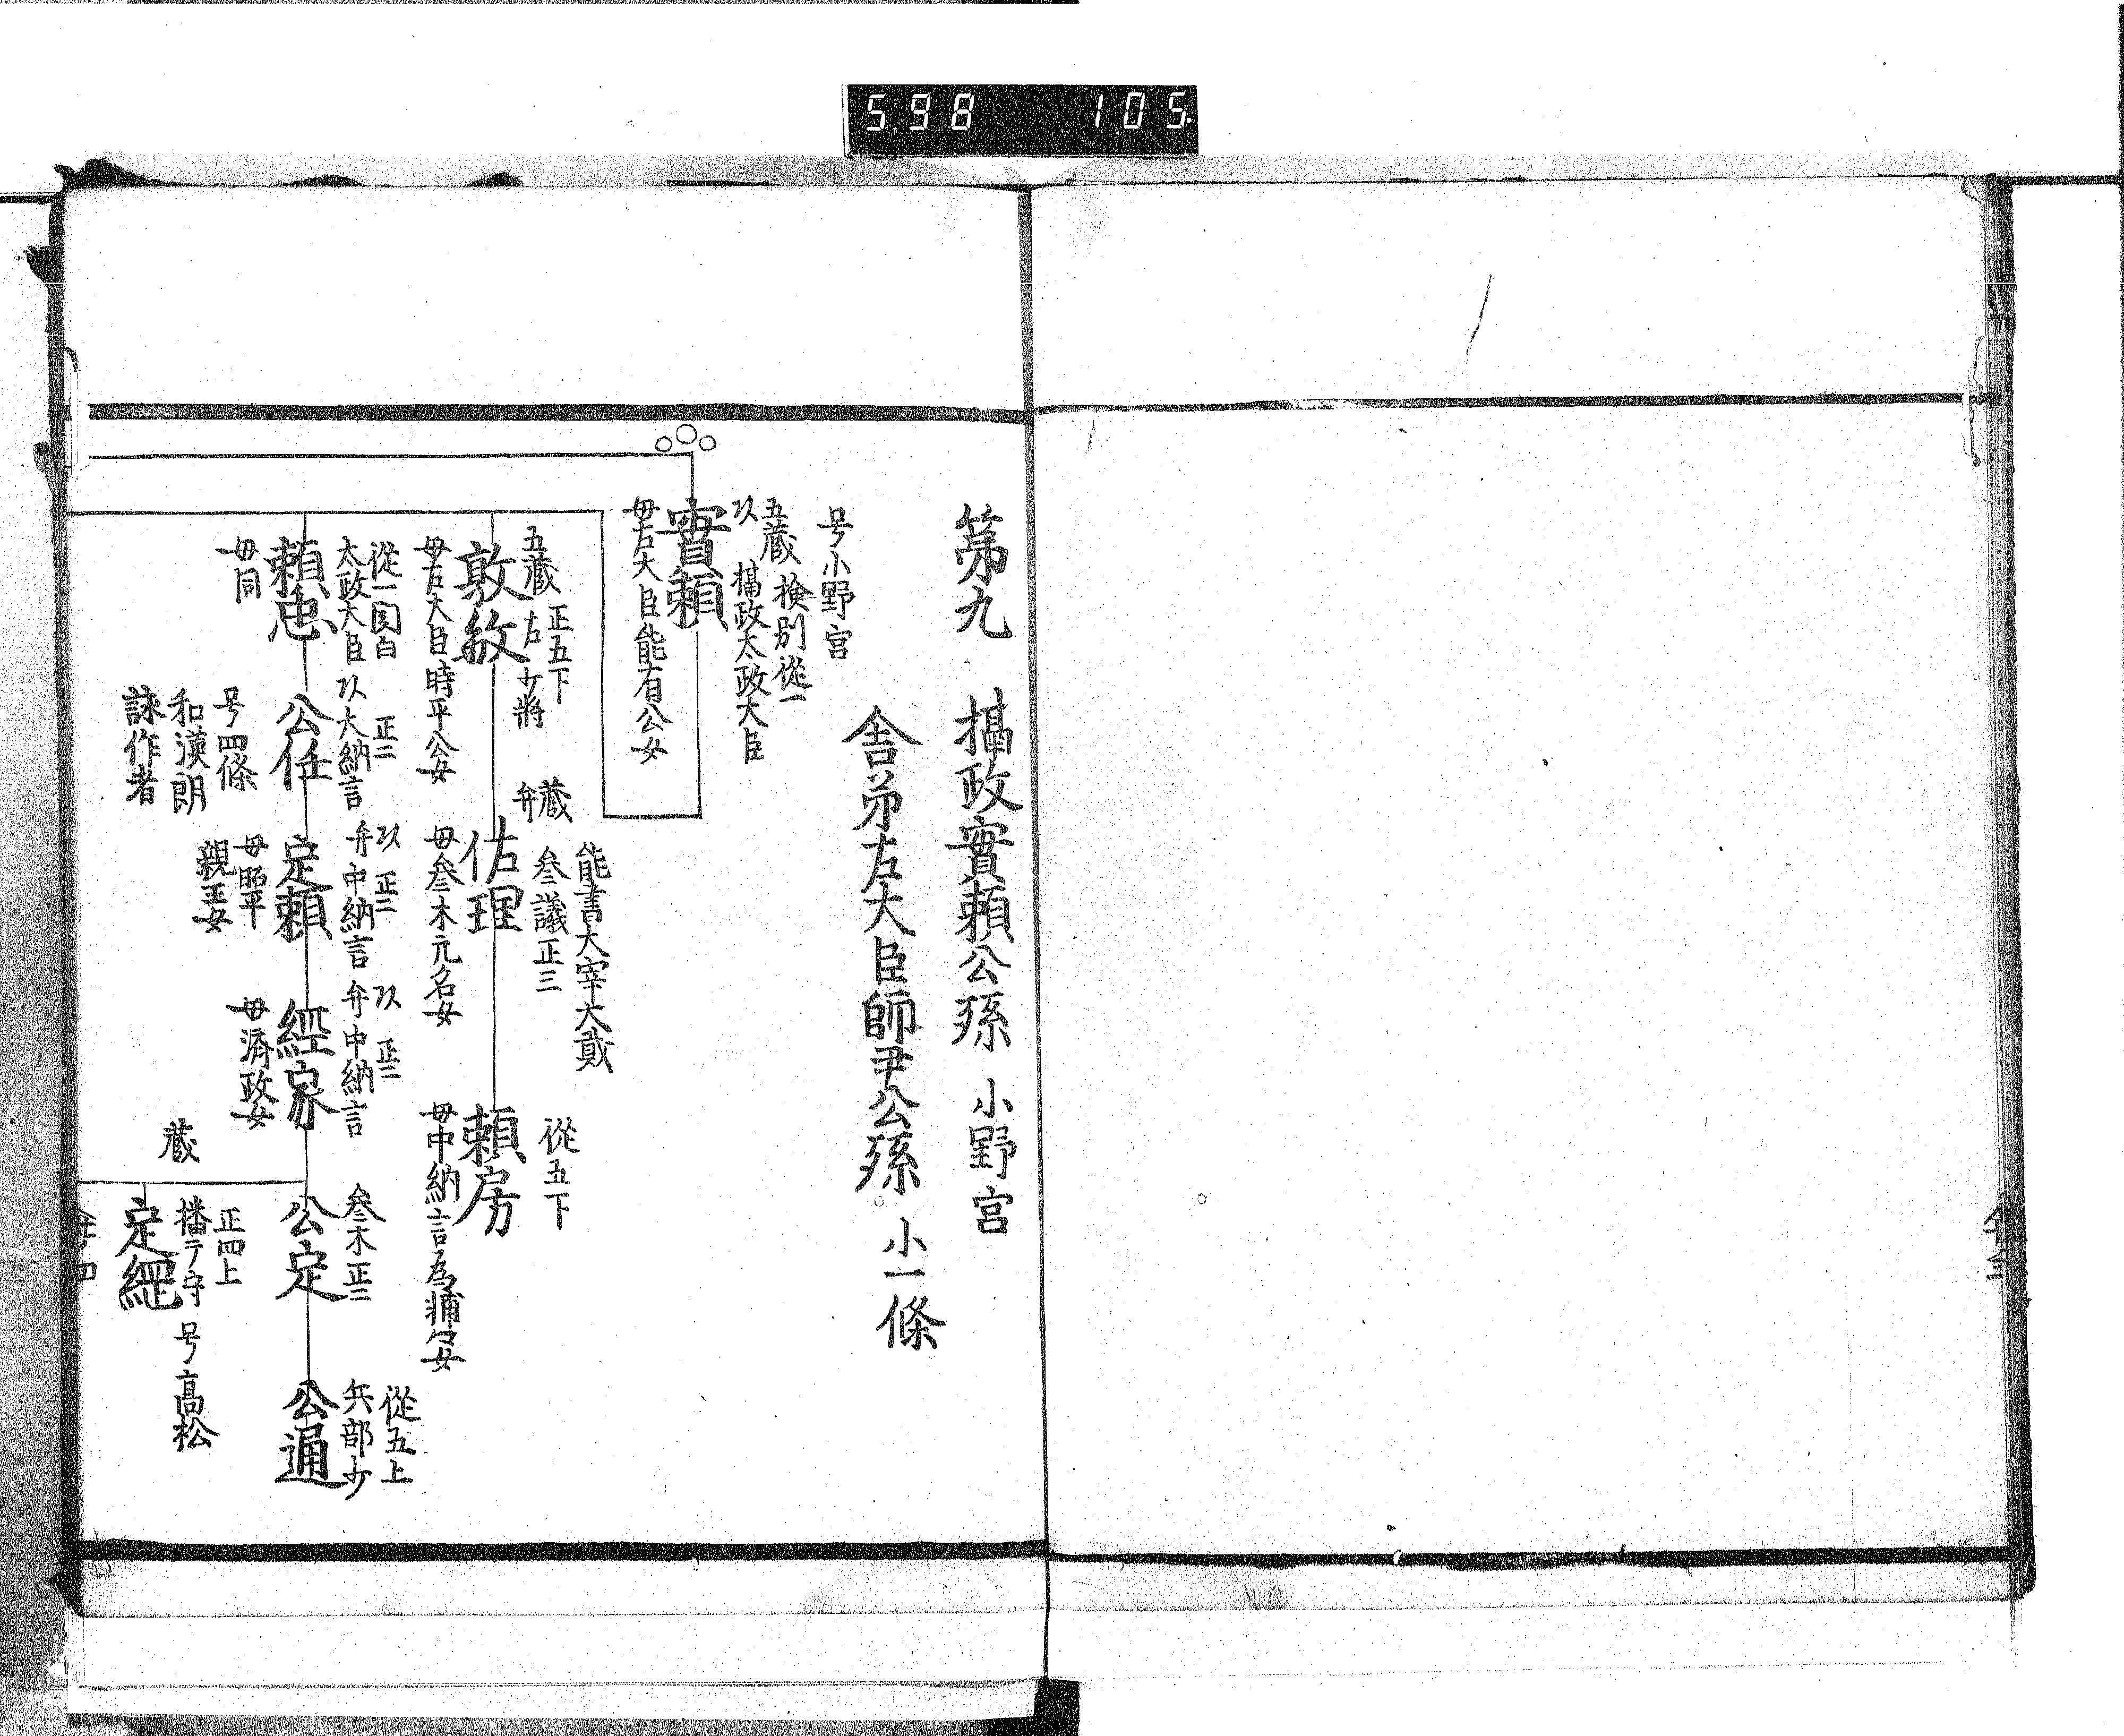 5.98 105.
第九 攝政實頼公孫 小野宮
舎弟左大臣師尹公孫 小一條
号小野宮
五蔵 検別 從一
以 攝政太政大臣
實頼
母右大臣能有公女
五蔵 正五下
左少將
敦敏
母左大臣時平公女
能書大宰大貳
蔵 叁議正三
弁
佐理
母叁木元名女
從五下
頼房
母中納言為輔女
從一 関白
太政大臣
頼忠
母同
正二
以大納言
公任
号四條
和漢朗
詠作者
以 正二
弁中納言
定頼
母昭平
親王女
以 正二
弁中納言
經家
母濟政女
叁木正二
公定
從五上
兵部少
公通
蔵
正四上
播ー守 号高松
定經